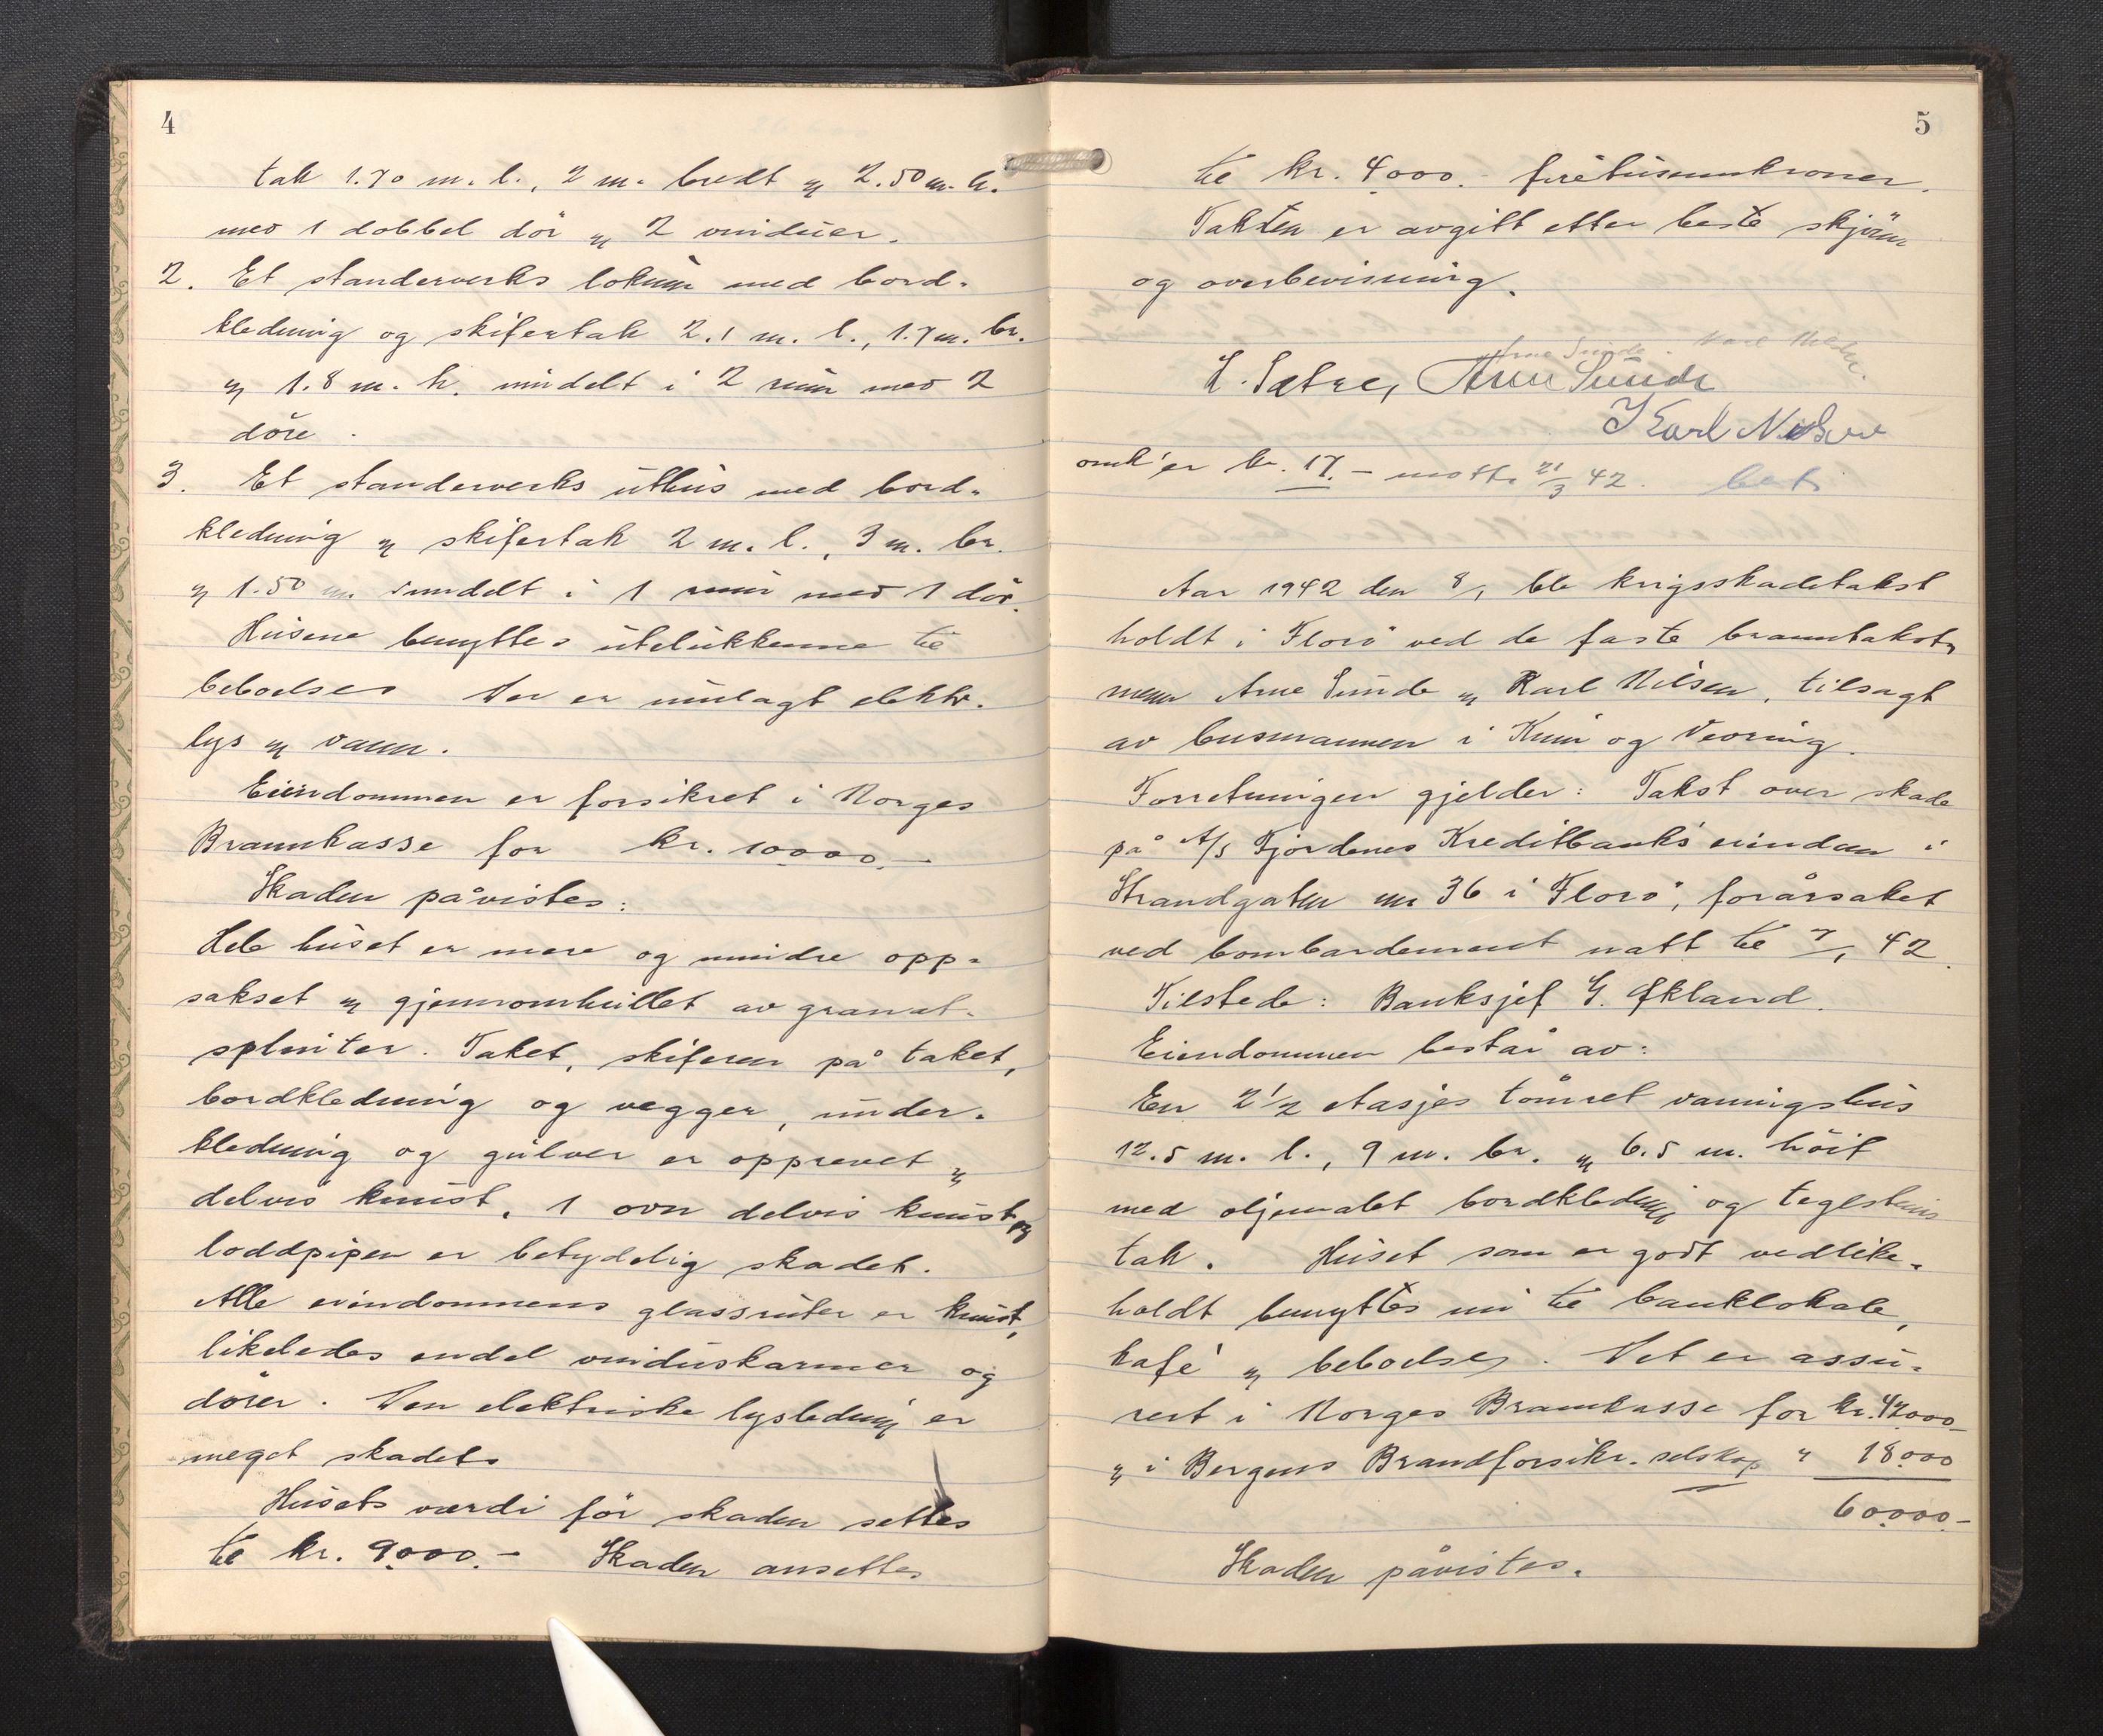 4
tak 1.70 m. l., 2 m. bredt og 2.50 m. h.
med 1 dobbel dør og 2 vinduer.
2. Et standerverks lokum med bord-
kledning og skifertak 2.1 m. l., 1.7 m. br.
og 1.8 m. h. inndelt i 2 rum med 2
döre.
3. Et standerverks uthus med bord-
kledning og skifertak 2 m. l., 3 m. br.
og 1.50 m. inndelt i 1 rum med 1 dör.
Husene benyttes utelukkenne til
beboelses Der er innlagt elektr.
lys og vann.
Eiendommen er forsikret i Norges
Brannkasse for kr. 10.000.-
Skaden påvistes:
Hele huset er mere og mindre opp-
sakset og gjennomhullet av granat-
splinter. Taket, skiferen på taket,
bordkledning og vegger, under-
kledning og gulver er opprevet og
delvis knust, 1 ovn delvis knust og
loddpipen er betydelig skadet.
Alle eiendommens glassruter er knust,
likeledes endel vinduskarmer og
dörer. Den elektriske lysledning er
meget skadet.
Husets værdi för skaden settes
til kr. 9.000.- Skaden ansettes
5
til kr. 4.000.- firetusennkroner.
Taksten er avgitt etter beste skjönn
og overbevisning.
Arne Sunde. Karl Nilsen.
L. Sætre, Arne Sunde
Karl Nilsen
omk'er kr. 17.- mott. 21/3 42. bet.
Aar 1942 den 8/1 ble krigsskadetakst
holdt i Florö ved de faste branntakst-
menn Arne Sunde og Karl Nilsen, tilsagt
av lensmannen i Kinn og Vevring.
Forretningen gjelder: Takst over skade
på A/S Fjordenes Kreditbank's eiendom i
Strandgaten nr 36 i Florö, forårsaket
ved bombardement natt til 7/1 42.
Tilstede: Banksjef G. Økland.
Eiendommen består av:
En 2 1/2 etasjes tömret vaningshus
12.5 m. l., 9 m. br. og 6.5 m. höit
med oljemalet bordkledning og teglstens
tak. Huset som er godt vedlike-
holdt benyttes nu til banklokale,
kafé og beboelses. Det er assu-
rert i Norges Brannkasse for kr. 42.000-
og i Bergens Brandforsikr. selskap " 18.000
60.000.-
Skaden påvistes.